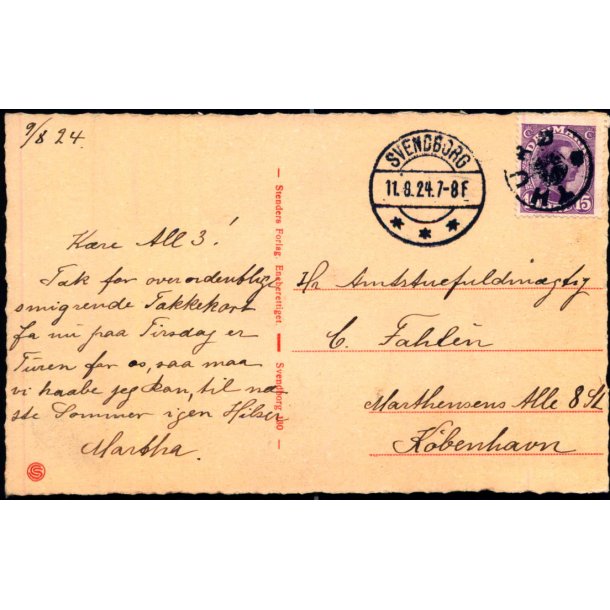 9/8 24.
Kære All 3!
Tak for overordentlig
smigrende Takkekort
Ja nu paa Tirsdag er
Turen for os, saa maa
vi haabe jeg kan, til næ
ste Sommer igen Hilsen
Martha.
Stenders Forlag. Eneberettiget — Svendborg 130
SVENDBORG
11.8.24.7-8F
DANMARK
15
Hr Amtstuefuldmægtig
C. Fahlén
Marthensens Alle 8 St
København
S